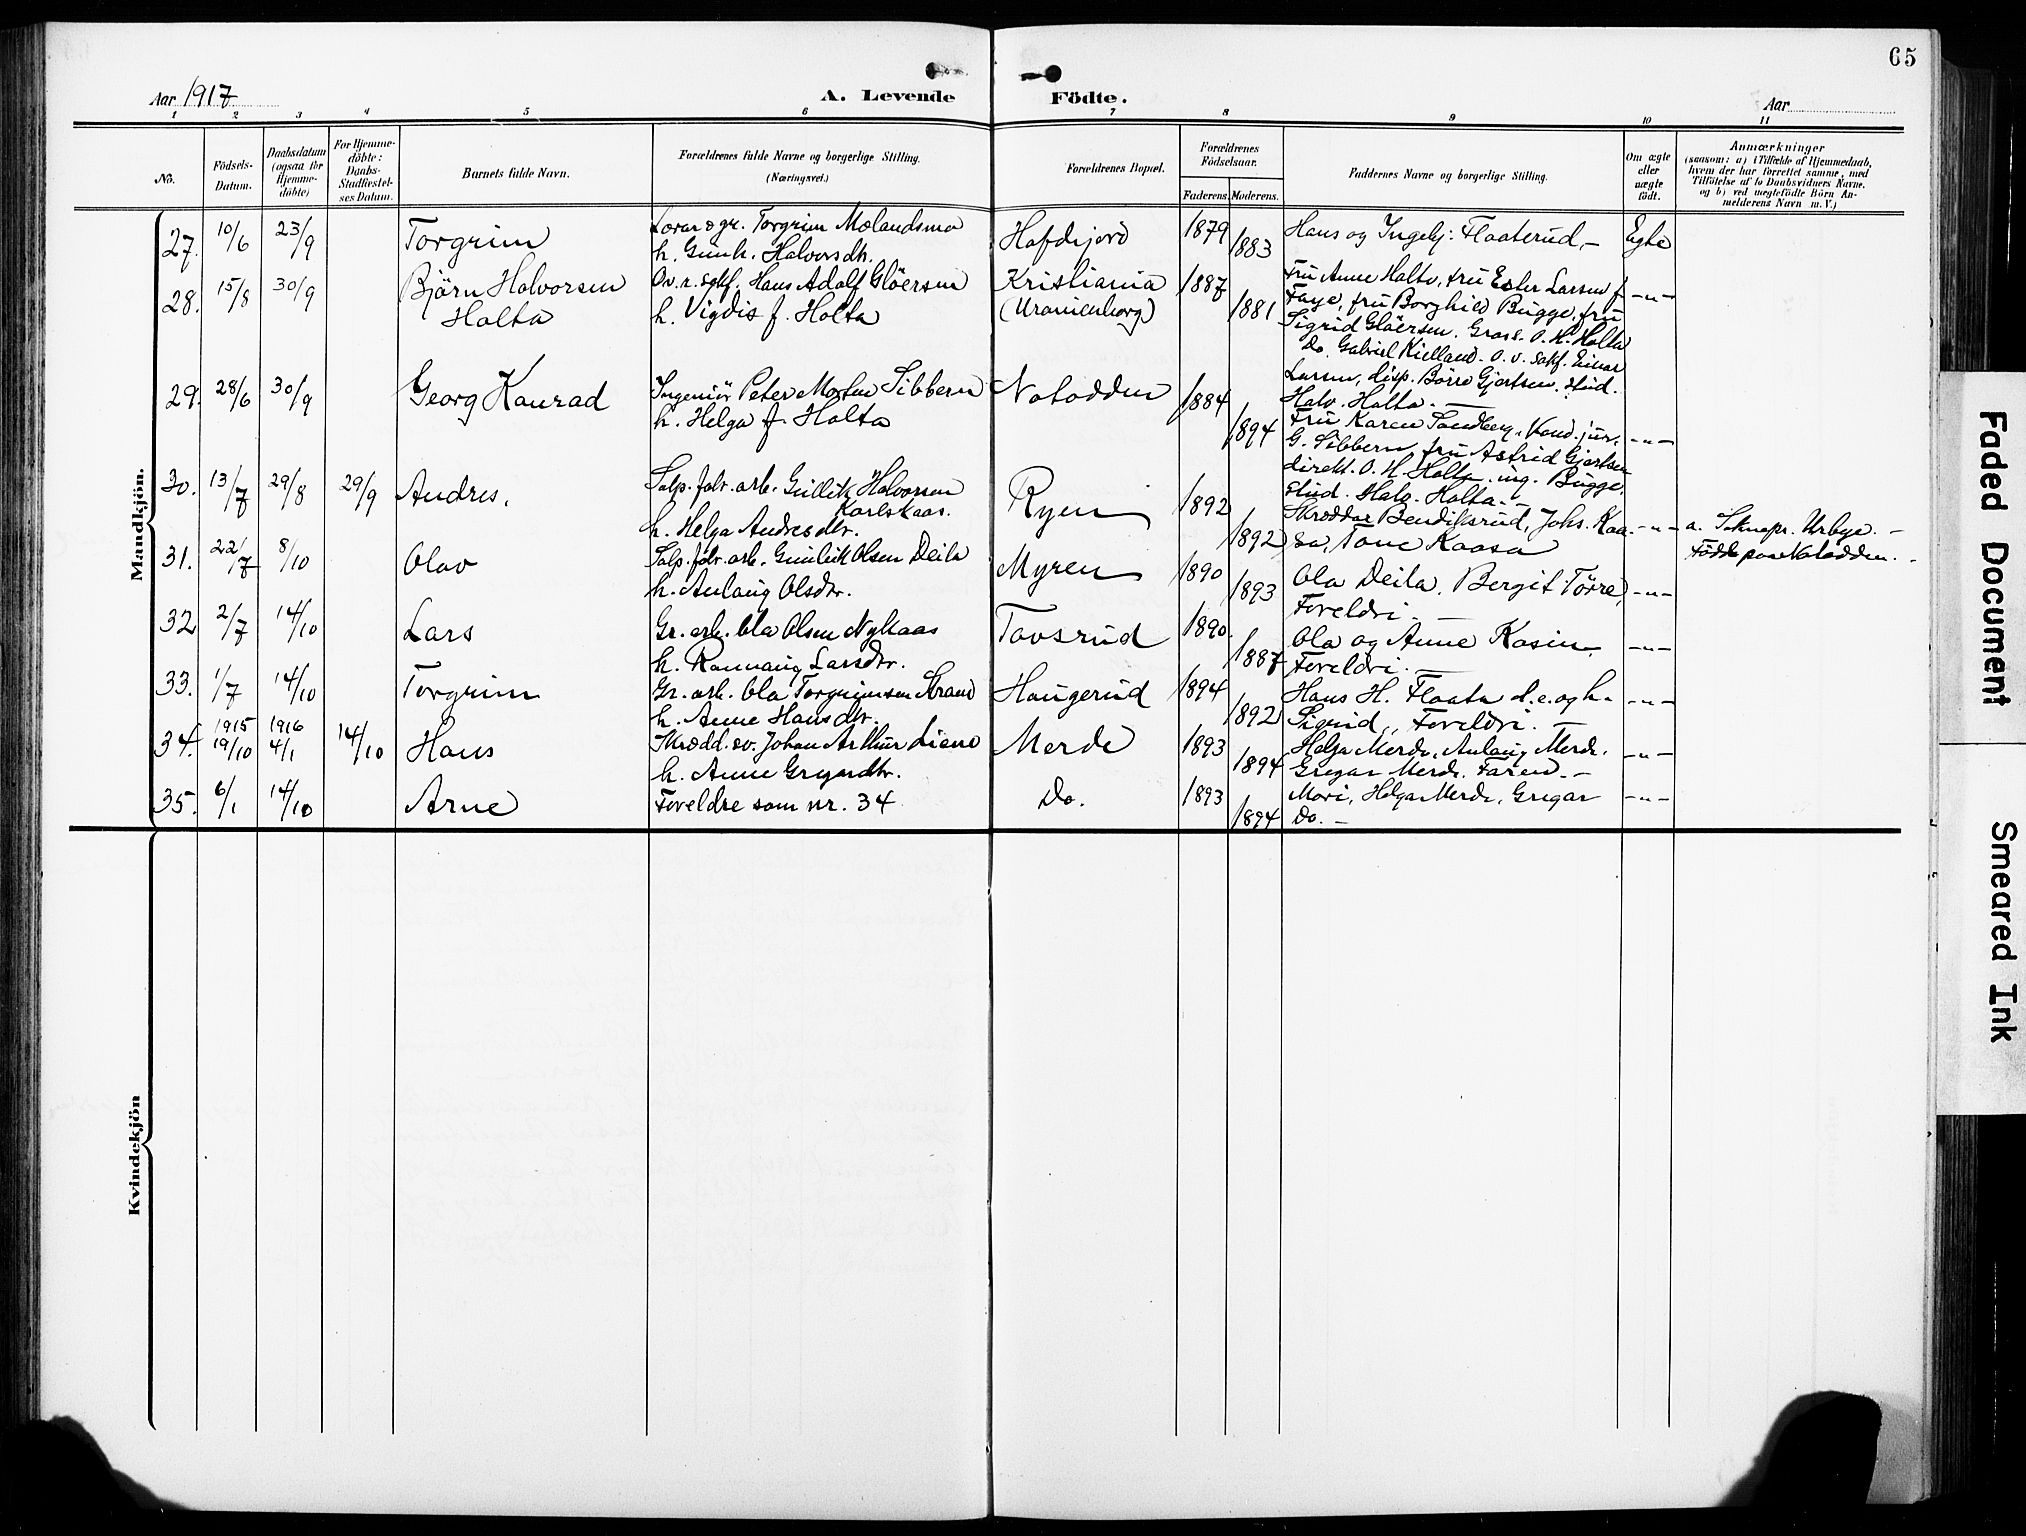 65
Aar 1917
A. Levende Födte.
Aar
1 2 3 4 5 6 7 8 9 10 11
No.
Födsels-Datum.
Daabsdatum (ogsaa for Hjemme-döbte)
For Hjemme-döbte: Daabs-Stadfæstel-ses Datum.
Barnets fulde Navn.
Forældrenes fulde Navne og borgerlige Stilling. (Næringsvei.)
Forældrenes Bopæl.
Forældrenes Födselsaar.
Faderens. Moderens.
Faddernes Navne og borgerlige Stilling.
Om ægte eller uægte födt.
Anmærkninger
(saasom: a) i Tilfælde af Hjemmedaab,
hvem der har forrettet samme, med
Tilföielse af to Daabsvidners Navne.
og b) ved uegtefödte Börn An-
melderens Navn m. V.)
Mandkjön.
27. 10/6 23/9 Torgrim
Torgrim Molandsmo
h. Gunh. Halvorsdtr.
1879 1883
Hans og Ingebj: Flaaterud,- Egte
28. 15/8 30/9 Björn Halvorsen
Holta
Ov. r. sakf. Hans Adolf Glöersen
h. Vigdis f. Holta
Kristiania
(Uranienborg)
1887 1881
Fru Anne Holta, fru Ester Larsen f -"-
Faye, fru Borghild Bugge, fru
Sigrid Glöersen. Gross. O. H. Holta
Do. Gabriel Kielland. O. r. sakf. Einar
Larsen, disp. Börre Gjertsen. stud.
Halv. Holta.-
29. 28/6 30/9 Georg Konrad
Ingeniör Peter Morten Sibbern
h. Helga f. Holta
Notodden
1884 1894
Fru Karen Sandberg, Kand. jur. -"-
G. Sibbern, fru Astrid Gjertsen
direkt. O. H. Holta. ing. Bugge.
Stud. Halv. Holta.-
30. 13/7 29/8 29/9 Andres.
Salp. fabr. arb. Gullik Halvorsen
Karlskaas.
h. Helga Andresdtr.
Ryen
1892 1892
Skræddar Bendiksrud, Johs. Kaa- -"-
sa, Tone Kaasa
a. Urbye.-
Född paa Notodden.-
31. 22/7 8/10 Olav
Salp. fabr. arb. Gunleik Olsen Deila
h. Aslaug Olsdtr.
Myren
1890 1893
Ola Deila, Bergit Törre, -"-
Foreldri.
32 2/7 14/10 Lars
Gr. arb. Ola Olsen Nykaas
h. Rannaug Larsdtr.
Tovsrud
1890. 1887
Ola og Anne Kasin. -"-
Foreldri.-
33. 1/7 14/10 Torgrim
Gr. arb. Ola Torgrimsen Strand
h. Anne Hansdtr.
Haugerud
1894 1892
Hans H. Flaata d. e. og h. -"-
Sigrid, Foreldri.-
34. 1915 19/10 1916 4/1 14/10 Hans
Skrædd. sv. Johan Arthur Liane
h. Anne Gregardtr.
Merde
1893 1894
Helga Merde, Aslaug Merde. -"-
Gregar Merde. Faren.-
35. 6/1 14/10 Arne
Foreldre som nr. 34
Do.
1893 1894
Mori, Helga Merde, Gregar -"-
Do.-
Kvindekjön
Faded Document
Smeared Ink